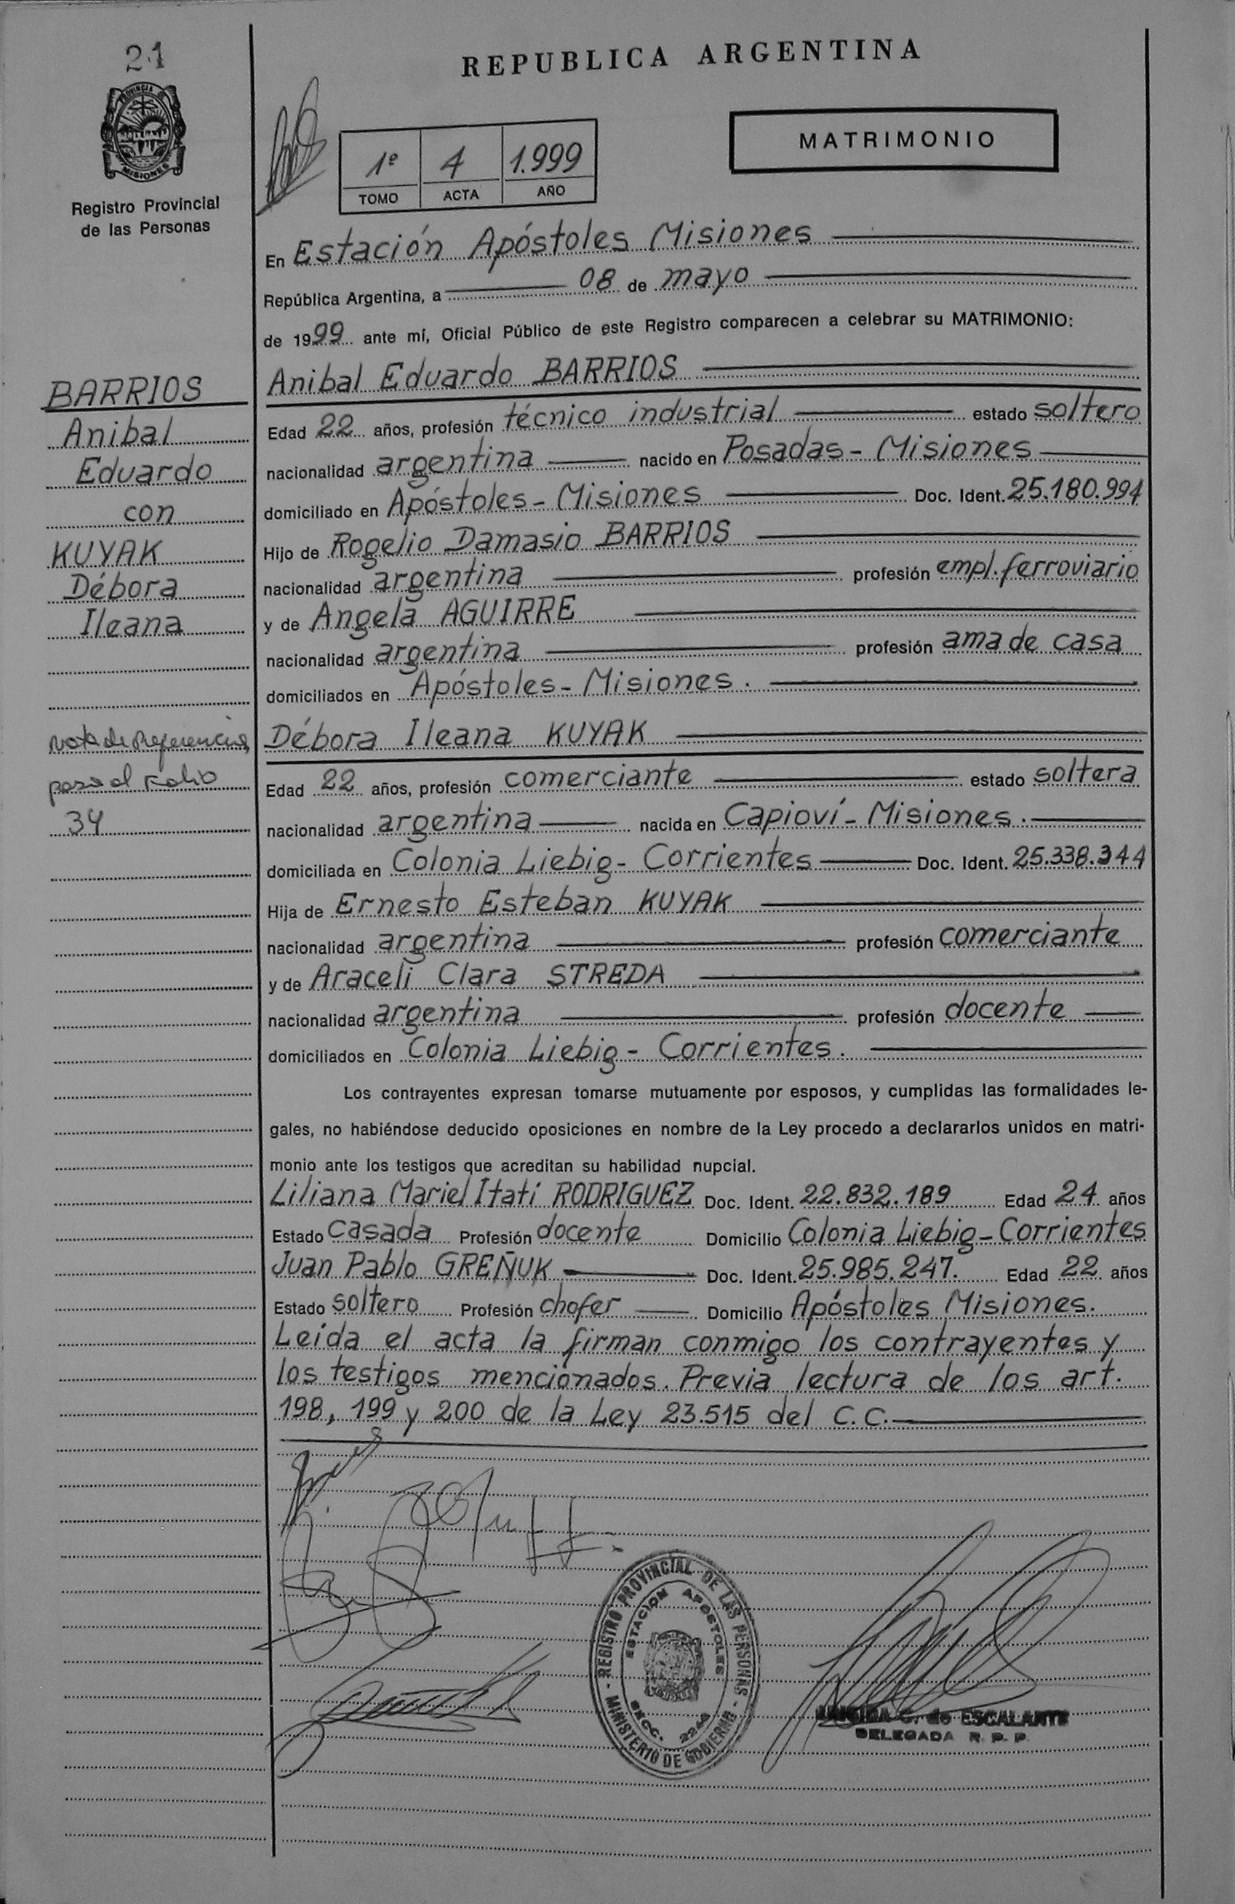 21
REPUBLICA ARGENTINA
PROVINCIA DE
MISIONES
Registro Provincial
de las Personas
1º 4 1.999
TOMO ACTA AÑO
MATRIMONIO
En Estación Apóstoles Misiones
República Argentina, a 08 de mayo
de 1999 ante mí, Oficial Público de este Registro comparecen a celebrar su MATRIMONIO:
BARRIOS
Anibal
Eduardo
con
KUYAK
Débora
Ileana
Nota de Referencia
pasa al Folio
34
Anibal Eduardo BARRIOS
Edad 22 años, profesión técnico industrial estado soltero
nacionalidad argentina nacido en Posadas - Misiones
domiciliado en Apóstoles - Misiones Doc. Ident. 25.180.994
Hijo de Rogelio Damasio BARRIOS
nacionalidad argentina profesión empl. ferroviario
y de Angela AGUIRRE
nacionalidad argentina profesión ama de casa
domiciliados en Apóstoles - Misiones.
Débora Ileana KUYAK
Edad 22 años, profesión comerciante estado soltera
nacionalidad argentina nacida en Capioví - Misiones.
domiciliada en Colonia Liebig - Corrientes Doc. Ident. 25.338.344
Hija de Ernesto Esteban KUYAK
nacionalidad argentina profesión comerciante
y de Araceli Clara STREDA
nacionalidad argentina profesión docente
domiciliados en Colonia Liebig - Corrientes.
Los contrayentes expresan tomarse mutuamente por esposos, y cumplidas las formalidades le-
gales, no habiéndose deducido oposiciones en nombre de la Ley procedo a declararlos unidos en matri-
monio ante los testigos que acreditan su habilidad nupcial.
Liliana Mariel Itatí RODRIGUEZ Doc. Ident. 22.832.189 Edad 24 años
Estado casada Profesión docente Domicilio Colonia Liebig - Corrientes
Juan Pablo GREÑUK Doc. Ident. 25.985.247. Edad 22 años
Estado soltero Profesión chofer Domicilio Apóstoles Misiones.
Leída el acta la firman conmigo los contrayentes y
los testigos mencionados. Previa lectura de los art.
198, 199 y 200 de la Ley 23.515 del C.C.
REGISTRO PROVINCIAL DE LAS PERSONAS
MINISTERIO DE GOBIERNO
ESTACION APOSTOLES
SECC.
de ESCALANTE
DELEGADA R. P. P.